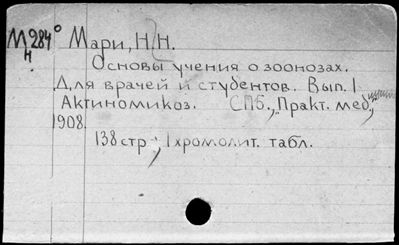 М284° Мари, Н.Н.
н
Основы учения о зоонозах.
Для врачей и студентов. Вып. I
Актиномикоз. СПб., „Практ. мед.“,
1908.
138 стр.; 1 хромолит. табл.